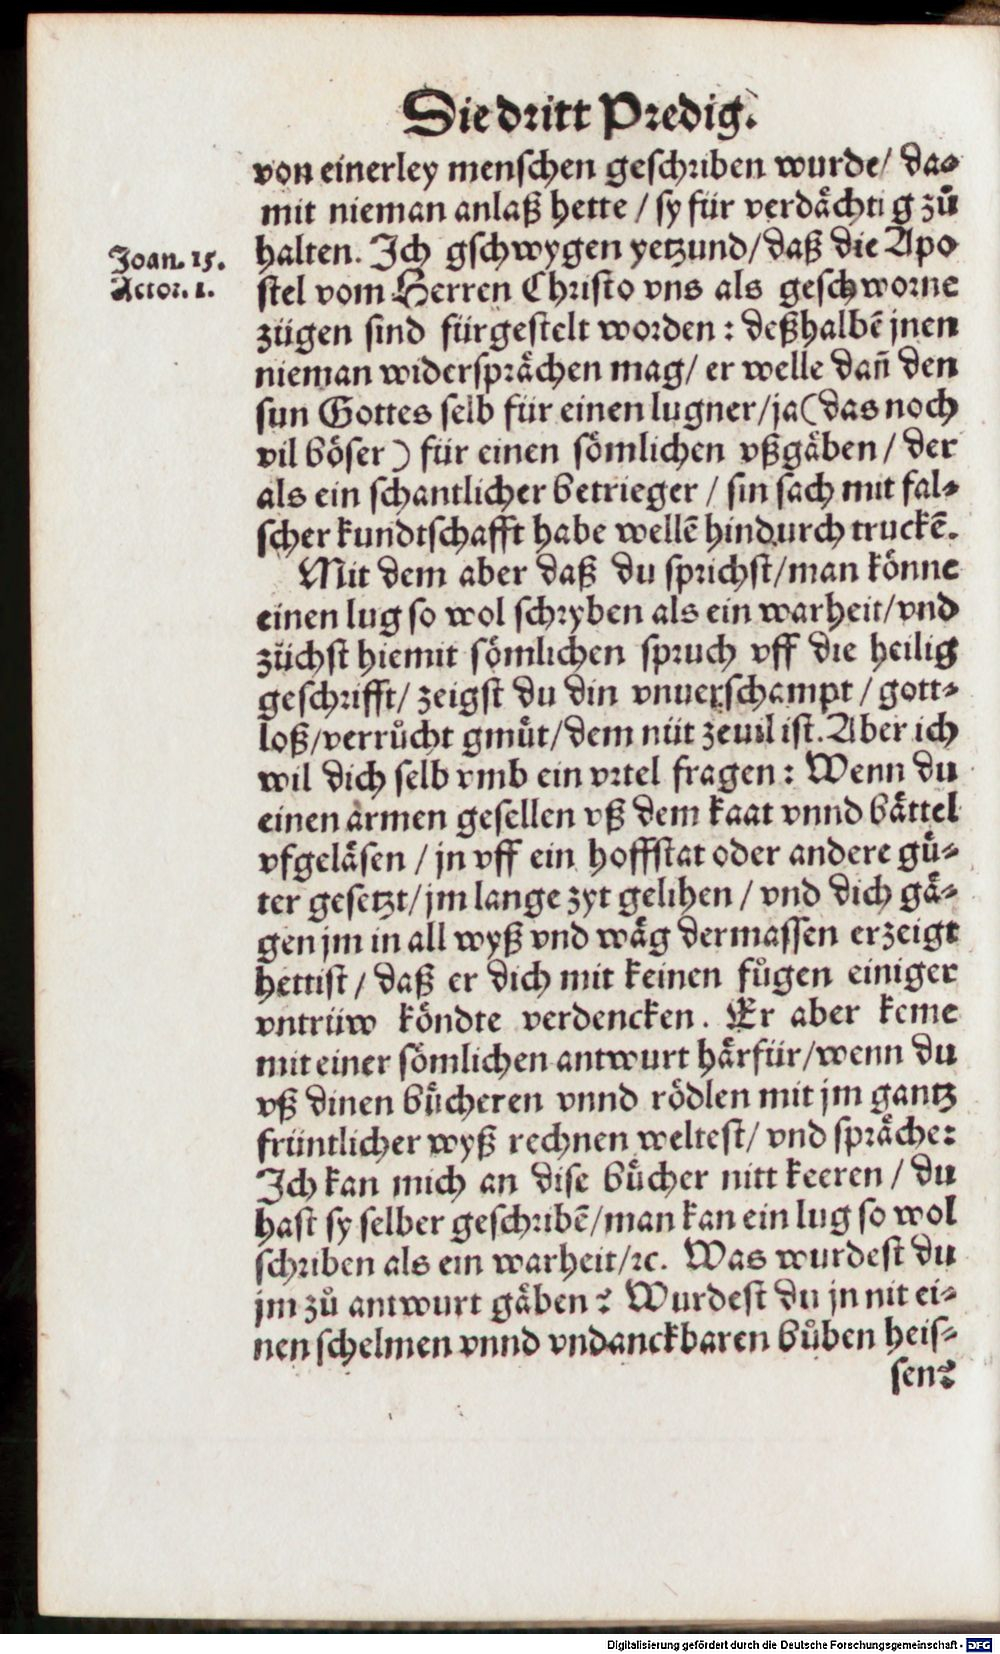 Die dritt Predig.
von einerley menschen geschriben wurde/ da⸗
mit nieman anlaß hette / sy für verdächtig zů
halten. Ich gschwygen yetzund/ daß die Apo
Joan. 15.
stel vom Herren Christo vns als geschworne
Actor. 1.
zügen sind fürgestelt worden: deßhalbē jnen
nieman widersprächen mag/ er welle dañ den
sun Gottes selb für einen lugner/ ja (das noch
vil böser) für einen sömlichen vßgäben / der
als ein schantlicher betrieger / sin sach mit fal⸗
scher kundtschafft habe wellē hindurch truckē.
Mit dem aber daß du sprichst/ man könne
einen lug so wol schryben als ein warheit/ vnd
züchst hiemit sömlichen spruch vff die heilig
geschrifft/ zeigst du din vnuerschampt / gott⸗
loß/ verrůcht gmůt/ dem nüt zeuil ist. Aber ich
wil dich selb vmb ein vrtel fragen: Wenn du
einen armen gesellen vß dem kaat vnnd bättel
vfgeläsen / jn vff ein hoffstat oder andere gů⸗
ter gesetzt/ jm lange zyt gelihen / vnd dich gä⸗
gen jm in all wyß vnd wäg dermassen erzeigt
hettist / daß er dich mit keinen fůgen einiger
vntrüw köndte verdencken. Er aber keme
mit einer sömlichen antwurt härfür/ wenn du
vß dinen bůcheren vnnd rödlen mit jm gantz
früntlicher wyß rechnen weltest/ vnd spräche:
Ich kan mich an dise bůcher nitt keeren / du
hast sy selber geschribē/ man kan ein lug so wol
schriben als ein warheit/ ꝛc. Was wurdest du
jm zů antwurt gäben? Wurdest du jn nit ei⸗
nen schelmen vnnd vndanckbaren bůben heis⸗
sen?
Digitalisierung gefördert durch die Deutsche Forschungsgemeinschaft - DFG